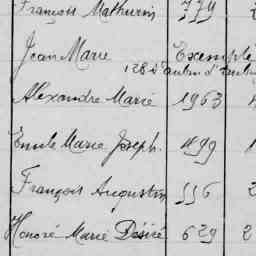 François Mathurin 779
Jean Marie Exempté
Alexandre Marie 1963
Emile Marie Joseph. 499
François Augustin 556
Honoré Marie Désiré 629 2